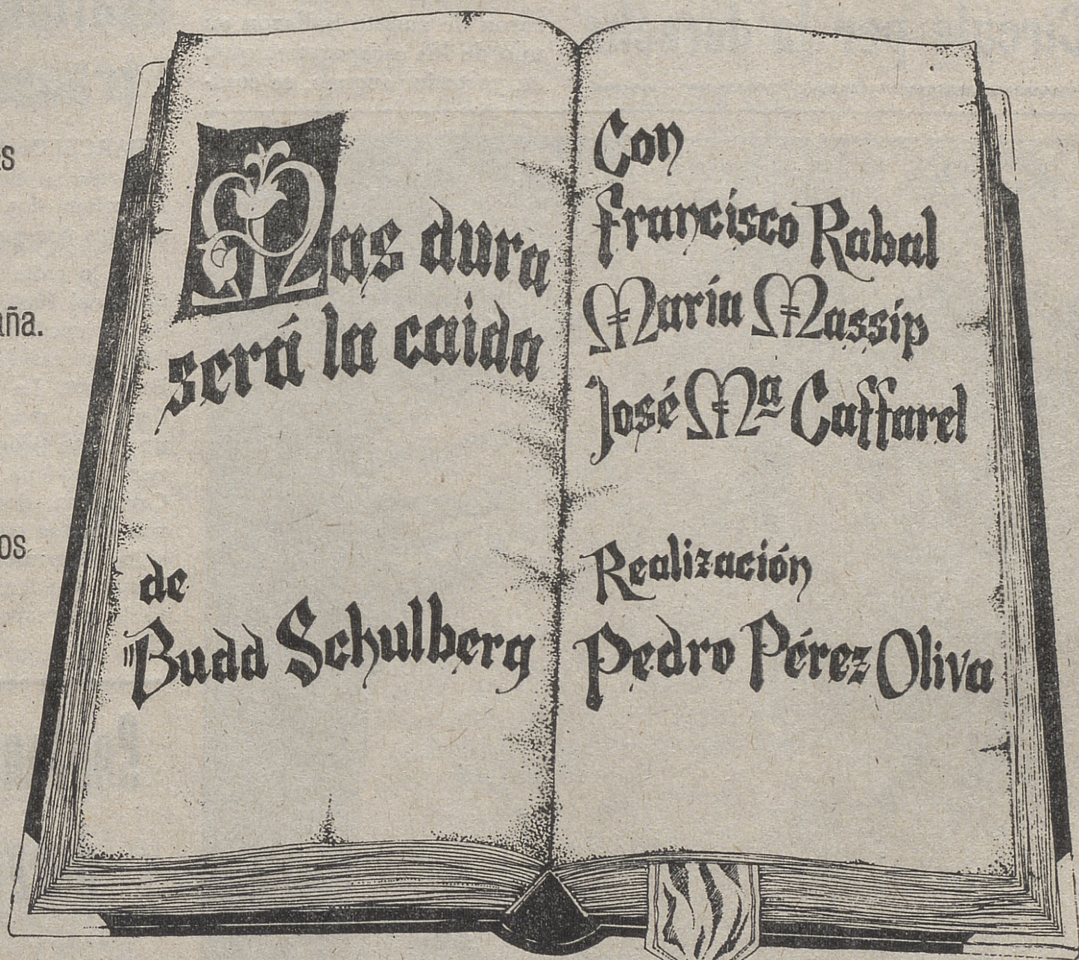 Mas dura
será la caida
de
Budd Schulberg
Con
Francisco Rabal
María Massip
José Mª Caffarel
Realización
Pedro Pérez Oliva